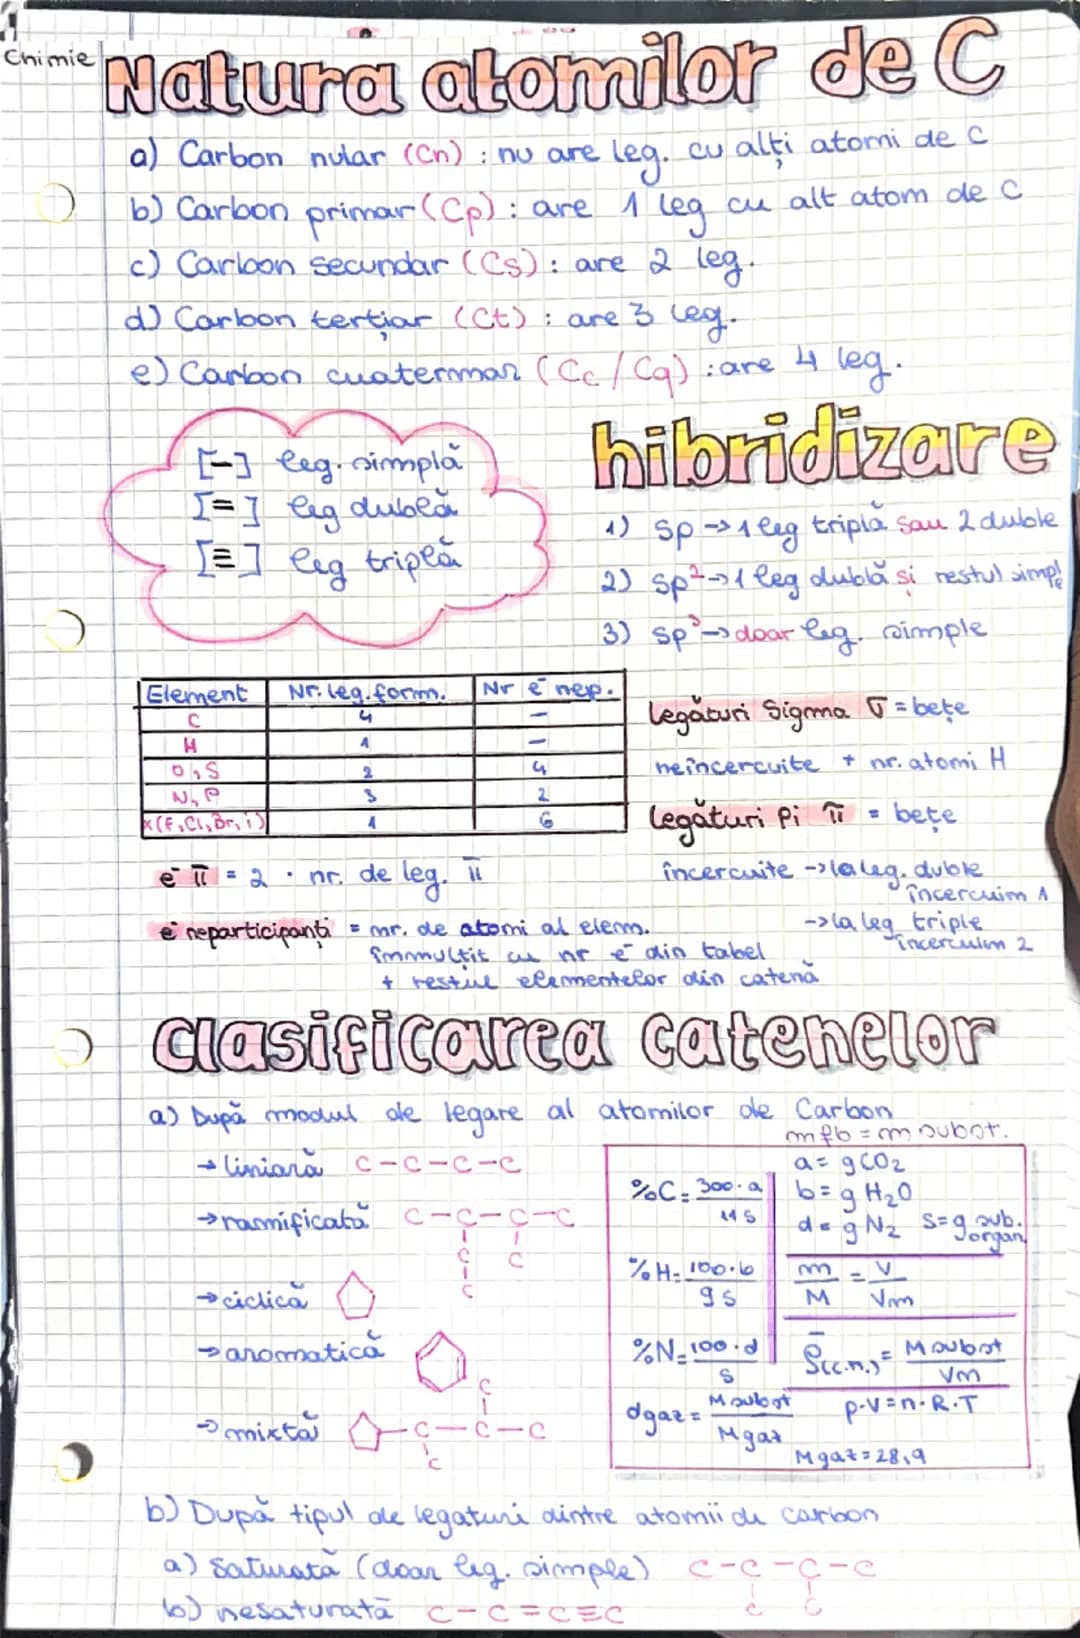 Chimie
Natura atomilor de C
a) Carbon nular (Cn) : nu are leg. cu alți atomi de C
b) Carbon primar (Cp) : are 1 leg cu alt atom de C
c) Carbon secundar (Cs) : are 2 leg.
d) Carbon terțiar (Ct) : are 3 leg.
e) Carbon cuaternar (Cc/Cq) : are 4 leg.
[-] leg. simplă
[=] leg dublă
[≡] leg triplă
hibridizare
1) sp → 1 leg triplă sau 2 duble
2) sp² → 1 leg dublă și restul simple
3) sp³ → doar leg. simple
Element Nr. leg. form. Nr e⁻ nep.
C 4 -
H 1 -
O, S 2 4
N, P 3 2
X(F, Cl, Br, i) 1 6
legături Sigma σ = bețe
neîncercuite + nr. atomi H
legături Pi π = bețe
încercuite → la leg. duble
încercuim 1
→ la leg triple
încercuim 2
e⁻ π = 2 · nr. de leg. π
e⁻ neparticipanți = nr. de atomi al elem.
înmulțit cu nr e⁻ din tabel
+ restul elementelor din catenă
Clasificarea catenelor
a) După modul de legare al atomilor de Carbon
→ liniară C-C-C-C
→ ramificată C-C-C-C
C C
C
→ ciclică
→ aromatică
→ mixtă C-C-C
C
C
mfb = m subst.
%C = 300·a / 11 S
a = g CO₂
b = g H₂O
d = g N₂ S = g sub. organ.
%H = 100·b / 9 S
m/M = V/Vm
%N = 100·d / S
ρ(c.n.) = M subst / Vm
dgaz = M subst / M gaz
p·V = n·R·T
M gaz = 28,9
b) După tipul de legaturi dintre atomii de carbon
a) saturată (doar leg. simple) C-C-C-C
C C
b) nesaturată C-C=C≡C